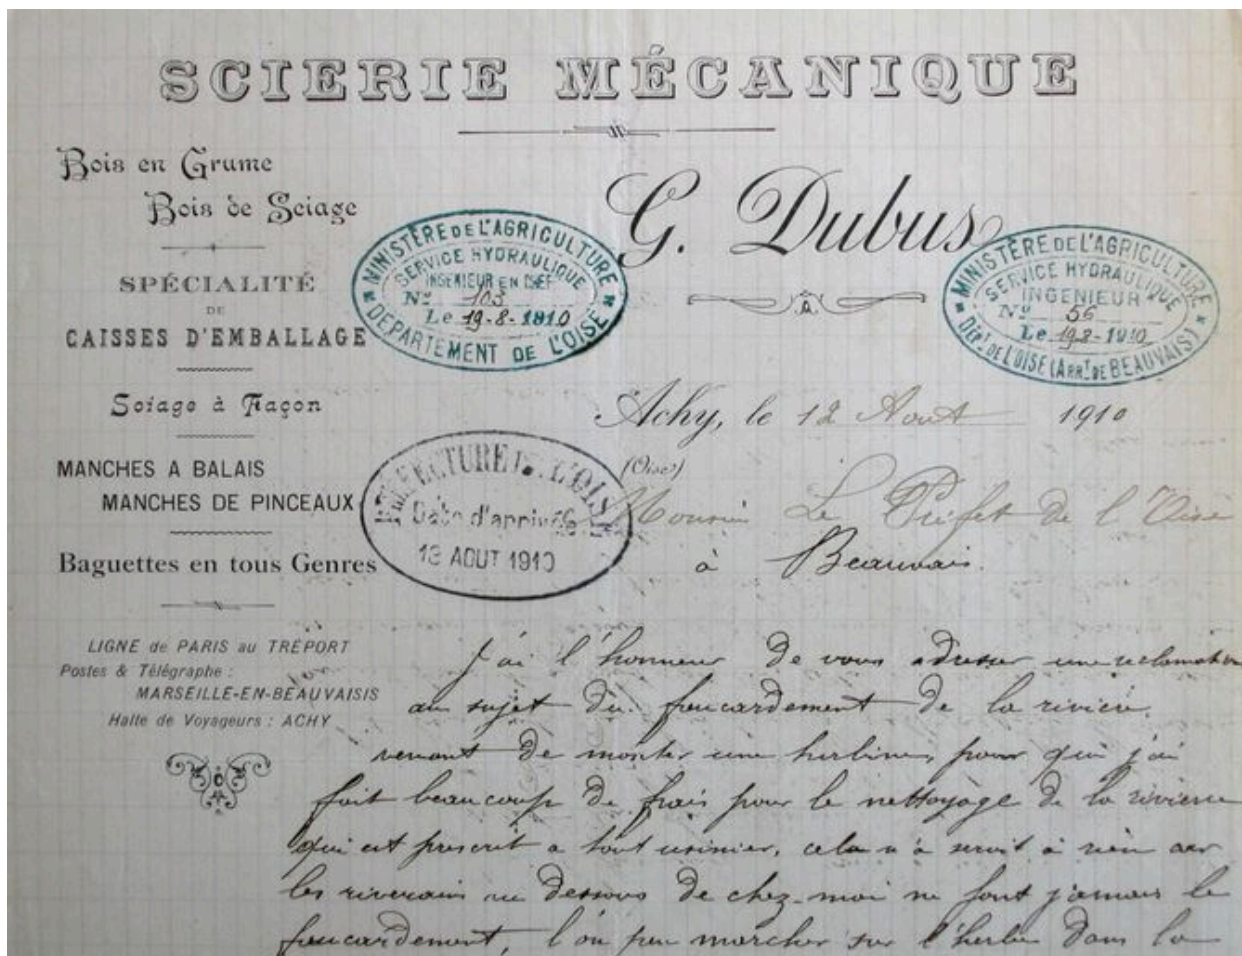 SCIERIE MÉCANIQUE
Bois en Grume
Bois de Sciage
SPÉCIALITÉ
DE
CAISSES D'EMBALLAGE
Sciage à Façon
MANCHES A BALAIS
MANCHES DE PINCEAUX
Baguettes en tous Genres
LIGNE de PARIS au TRÉPORT
Postes & Télégraphe :
MARSEILLE-EN-BEAUVAISIS
Halte de Voyageurs : ACHY
G. Dubus
MINISTÈRE DE L'AGRICULTURE
SERVICE HYDRAULIQUE
INGENIEUR EN CHEF
No 103
Le 19-8-1910
DÉPARTEMENT DE L'OISE
MINISTÈRE DE L'AGRICULTURE
SERVICE HYDRAULIQUE
INGENIEUR
No 56
Le 19-8-1910
DÉPt DE L'OISE (ARRt DE BEAUVAIS)
PRÉFECTURE DE L'OISE
Date d'arrivée
13 AOUT 1910
Achy, le 12 Aout 1910
(Oise)
Monsieur Le Préfet de l'Oise
à Beauvais.
J'ai l'honneur de vous adresser une reclamation
au sujet du foucardement de la rivière.
venant de monter une turbine, pour qui j'ai
fait beaucoup de frais pour le nettoyage de la riviere
qui est prescrit a tout usinier, cela n'à servit à rien car
les riverains au dessous de chez-moi ne font jamais le
foucardement, l'on peu marcher sur l'herbe dans la